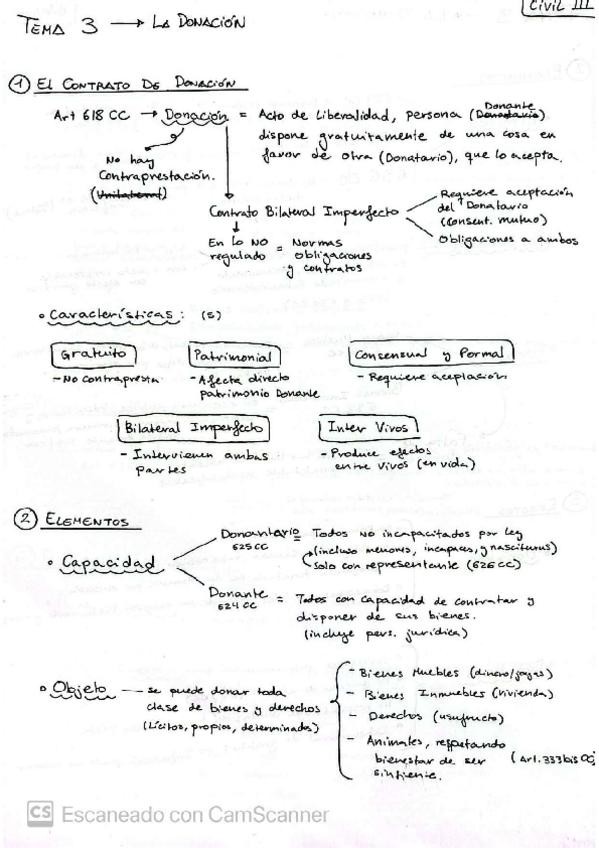 Civil III
TEMA 3 → LA DONACIÓN
① EL CONTRATO DE DONACIÓN
Art 618 CC → Donación = Acto de Liberalidad, persona (Donante
dispone gratuitamente de una cosa en
favor de otra (Donatario), que lo acepta.
No hay
Contraprestación.
(Unilateral)
Contrato Bilateral Imperfecto
Requiere aceptación
del Donatario
(consent. mutuo)
Obligaciones a ambos
En lo NO = Normas
regulado obligaciones
y contratos
Características: (5)
Gratuito
- No contrapresta.
Patrimonial
- Afecta directo
patrimonio Donante
Consensual y Formal
- Requiere aceptación
Bilateral Imperfecto
- Intervienen ambas
partes
Inter Vivos
- Produce efectos
entre vivos (en vida)
② ELEMENTOS
• Capacidad
Donantario = Todos NO incapacitados por ley
625 CC
(incluso menores, incapaces, y nasciturus)
Solo con representante (626 CC)
Donante = Todos con capacidad de contratar y
624 CC
disponer de sus bienes.
(incluye pers. jurídica)
• Objeto — se puede donar toda
clase de bienes y derechos
(Lícitos, propios, determinados)
- Bienes Muebles (dinero/joyas)
- Bienes Inmuebles (vivienda)
- Derechos (usufructo)
- Animales, respetando
bienestar de ser (Art. 333 bis CC)
sintiente.
CS Escaneado con CamScanner